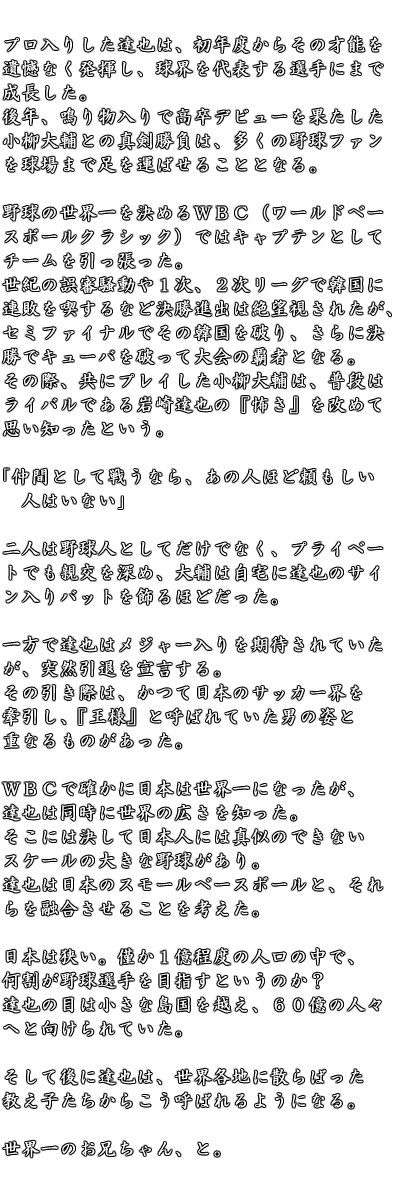 プロ入りした達也は、初年度からその才能を
遺憾なく発揮し、球界を代表する選手にまで
成長した。
後年、鳴り物入りで高卒デビューを果たした
小柳大輔との真剣勝負は、多くの野球ファン
を球場まで足を運ばせることとなる。
野球の世界一を決めるＷＢＣ（ワールドベー
スボールクラシック）ではキャプテンとして
チームを引っ張った。
世紀の誤審騒動や１次、２次リーグで韓国に
連敗を喫するなど決勝進出は絶望視されたが、
セミファイナルでその韓国を破り、さらに決
勝でキューバを破って大会の覇者となる。
その際、共にプレイした小柳大輔は、普段は
ライバルである岩崎達也の『怖さ』を改めて
思い知ったという。
「仲間として戦うなら、あの人ほど頼もしい
　人はいない」
二人は野球人としてだけでなく、プライベー
トでも親交を深め、大輔は自宅に達也のサイ
ン入りバットを飾るほどだった。
一方で達也はメジャー入りを期待されていた
が、突然引退を宣言する。
その引き際は、かつて日本のサッカー界を
牽引し、『王様』と呼ばれていた男の姿と
重なるものがあった。
ＷＢＣで確かに日本は世界一になったが、
達也は同時に世界の広さを知った。
そこには決して日本人には真似のできない
スケールの大きな野球があり。
達也は日本のスモールベースボールと、それ
らを融合させることを考えた。
日本は狭い。僅か１億程度の人口の中で、
何割が野球選手を目指すというのか？
達也の目は小さな島国を越え、６０億の人々
へと向けられていた。
そして後に達也は、世界各地に散らばった
教え子たちからこう呼ばれるようになる。
世界一のお兄ちゃん、と。